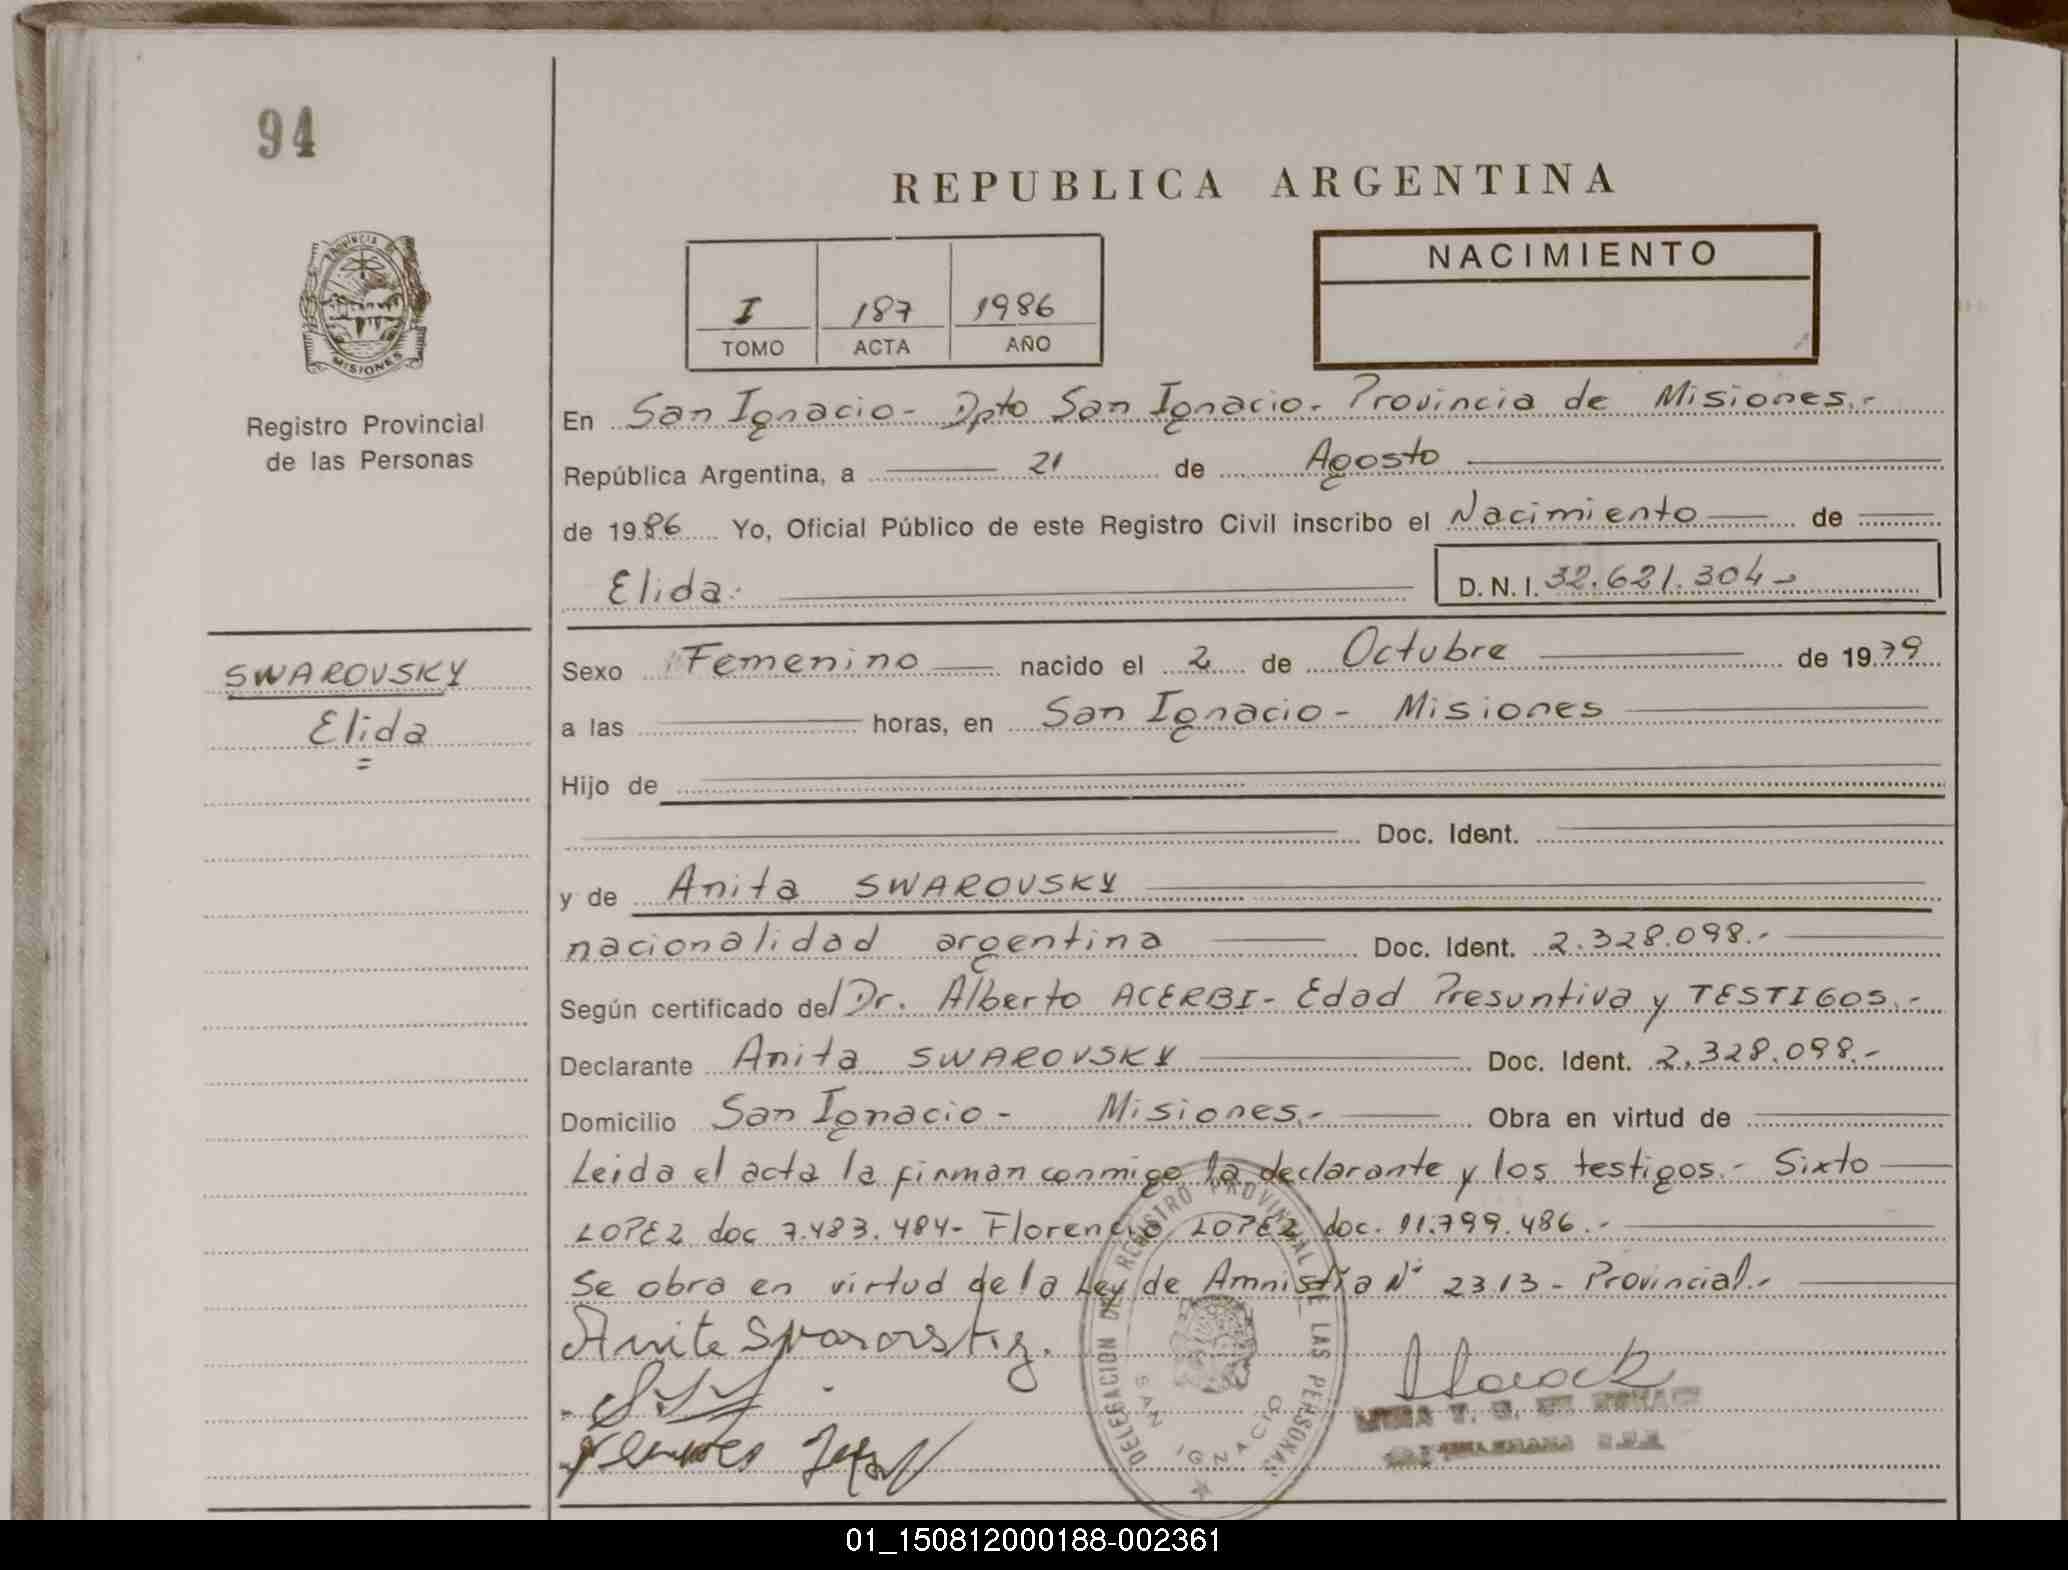 94
REPUBLICA ARGENTINA
PROVINCIA DE
MISIONES
Registro Provincial
de las Personas
I 187 1986
TOMO ACTA AÑO
NACIMIENTO
En San Ignacio - Dpto San Ignacio. Provincia de Misiones.-
República Argentina, a 21 de Agosto
de 1986 Yo, Oficial Público de este Registro Civil inscribo el Nacimiento de
Elida. D. N. I. 32.621.304-
SWAROVSKY
Elida
Sexo Femenino nacido el 2 de Octubre de 1979
a las horas, en San Ignacio - Misiones
Hijo de
Doc. Ident.
y de Anita SWAROVSKY
nacionalidad argentina Doc. Ident. 2.328.098.-
Según certificado del Dr. Alberto ACERBI - Edad Presuntiva y TESTIGOS.-
Declarante Anita SWAROVSKY Doc. Ident. 2.328.098.-
Domicilio San Ignacio - Misiones.- Obra en virtud de
Leida el acta la firman conmigo la declarante y los testigos.- Sixto
LOPEZ doc 7.483.484- Florencio LOPEZ doc. 11.799.486.-
Se obra en virtud de la Ley de Amnistía N° 2313 - Provincial.-
DELEGACION DEL REGISTRO PROVINCIAL DE LAS PERSONAS
SAN IGNACIO
01_150812000188-002361